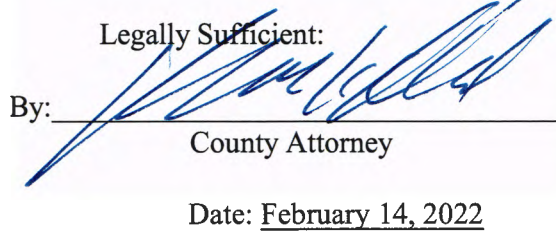 Legally Sufficient:
By:
County Attorney
Date: February 14, 2022